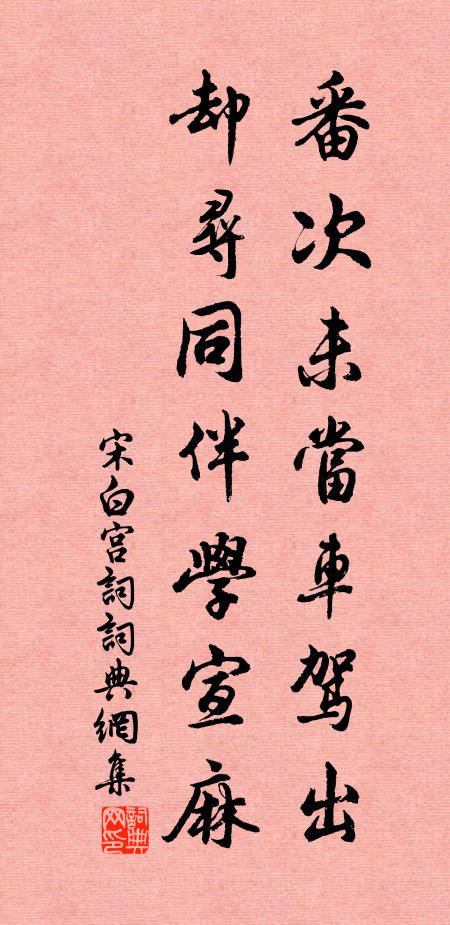 番次未當車駕出
却尋同伴學宣麻
宋白宮詞詞典網集
詞典网印